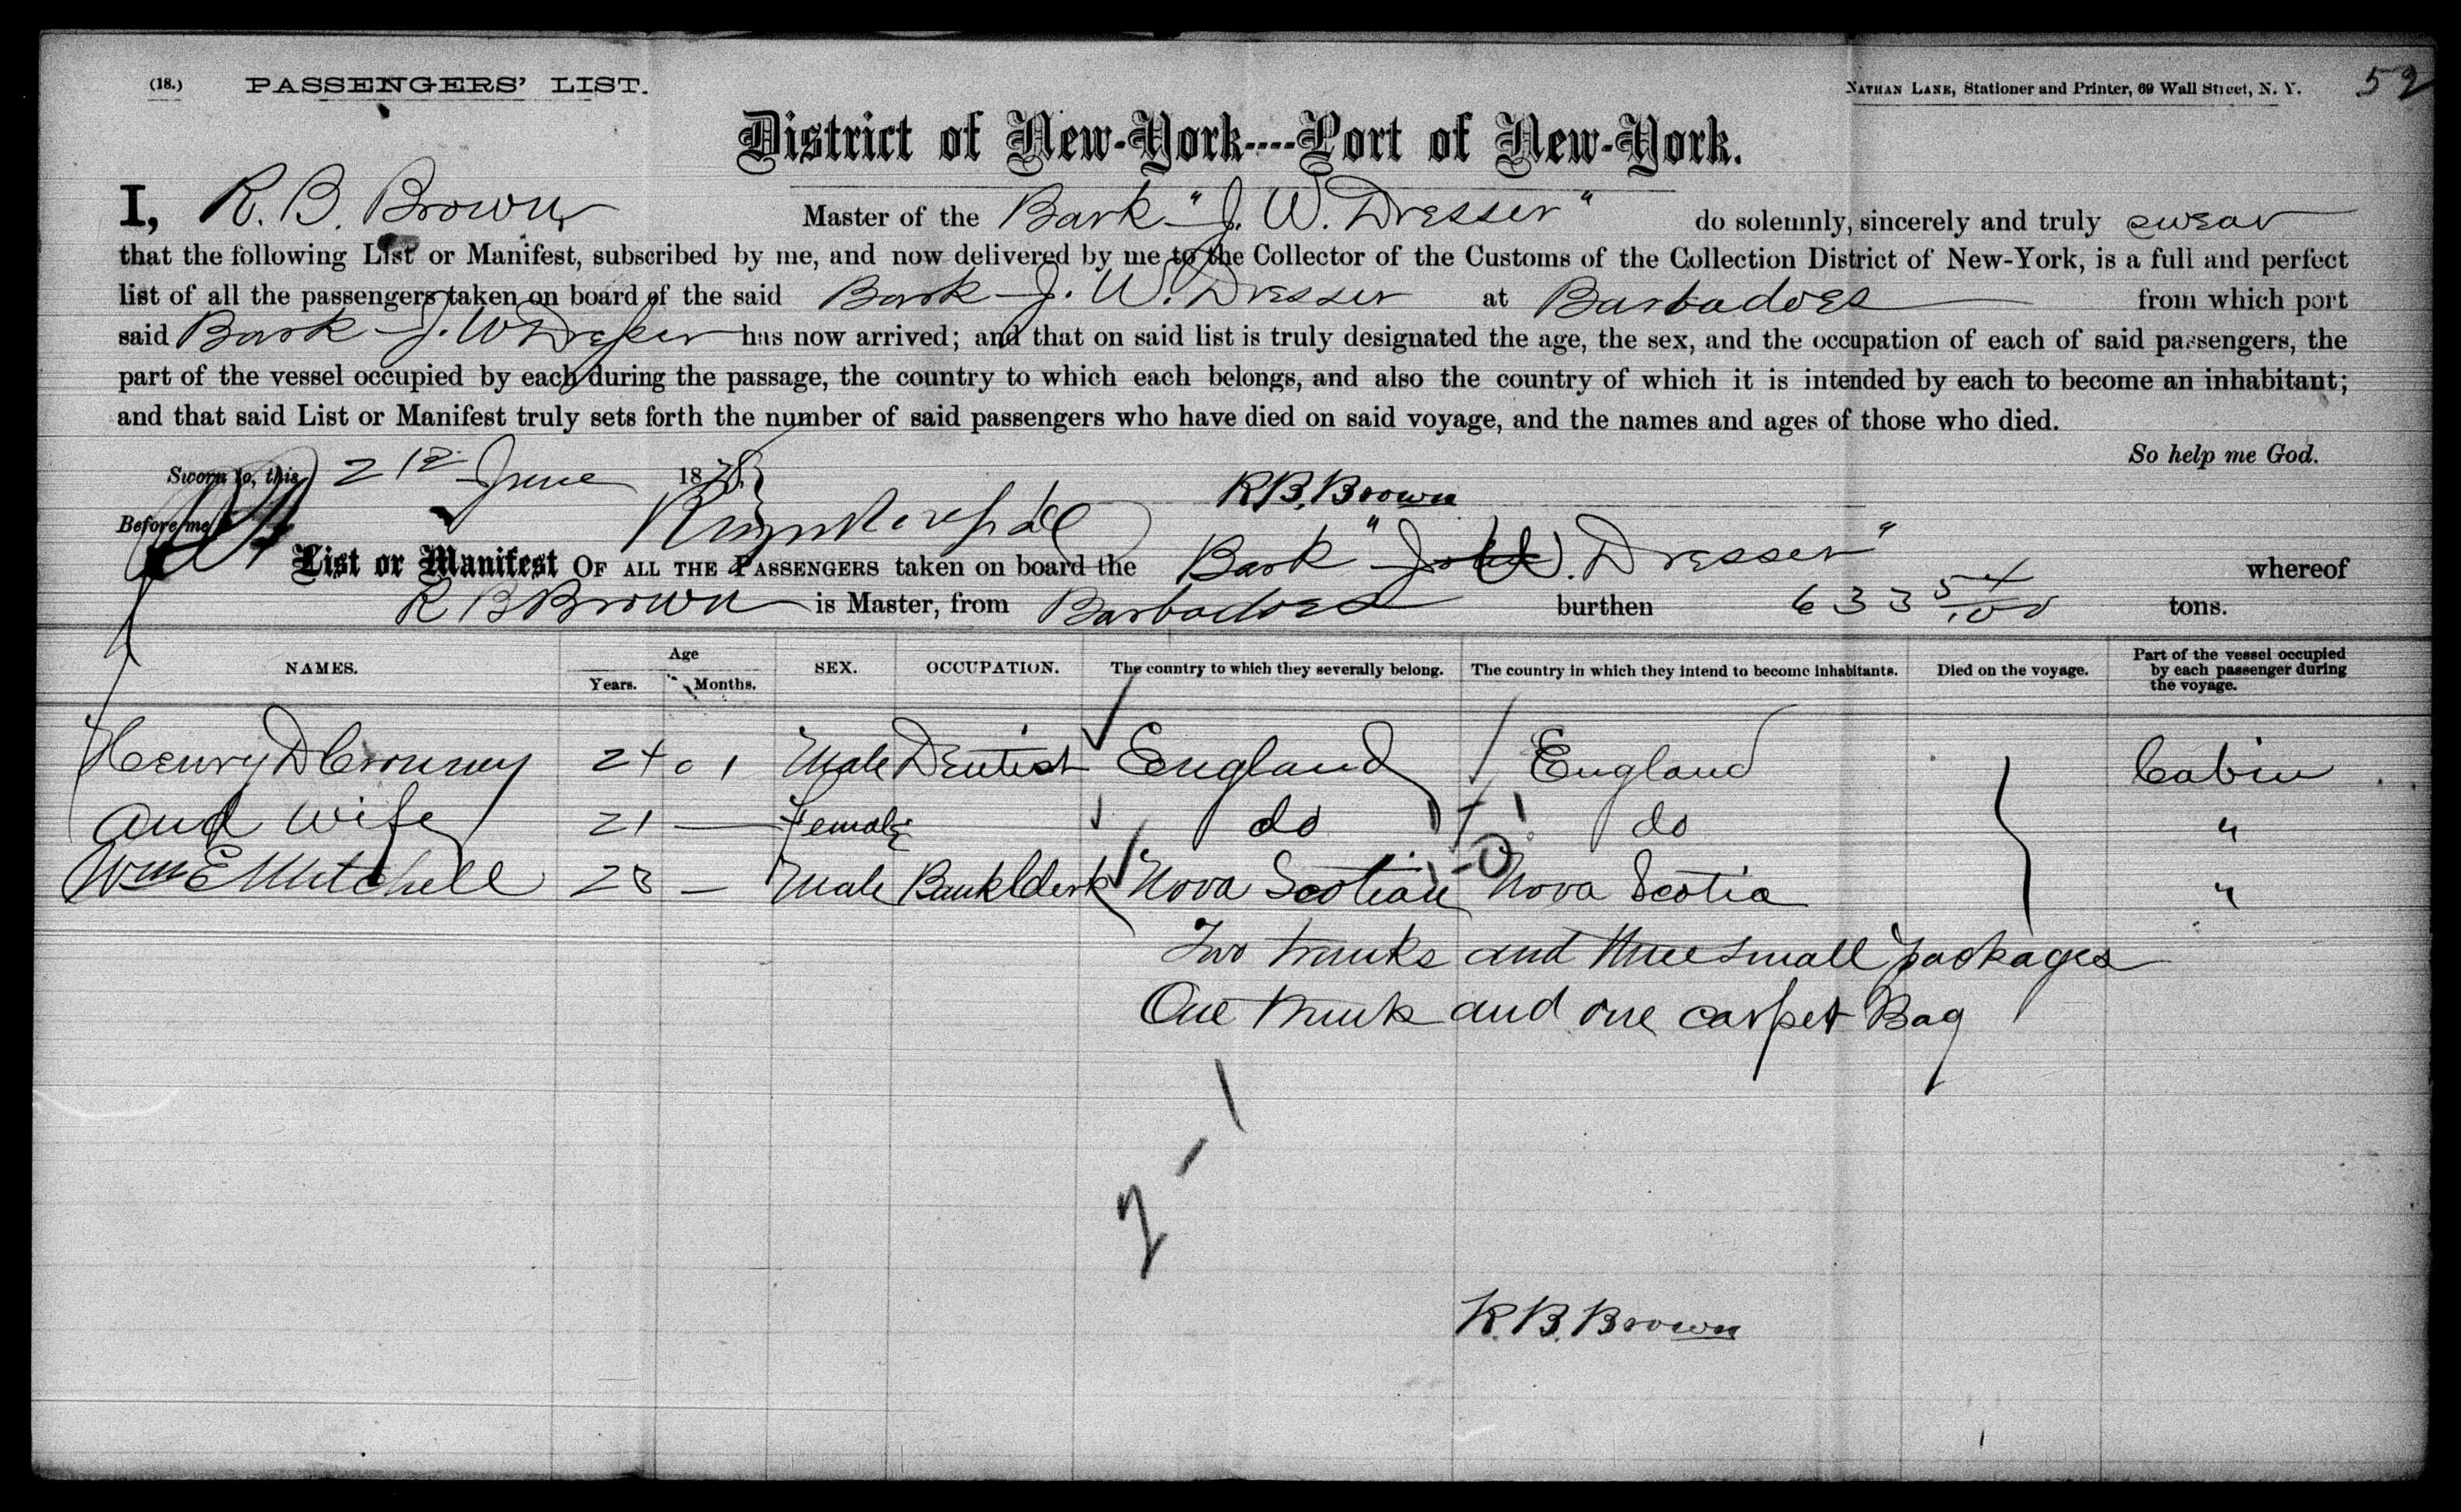 (18.) PASSENGERS' LIST.
NATHAN LANE, Stationer and Printer, 69 Wall Street, N. Y. 52
District of New-York----Port of New-York.
I, R. B. Brown Master of the Bark "J. W. Dresser" do solemnly, sincerely and truly swear
that the following List or Manifest, subscribed by me, and now delivered by me to the Collector of the Customs of the Collection District of New-York, is a full and perfect
list of all the passengers taken on board of the said Bark J. W. Dresser at Barbadoes from which port
said Bark J. W Dresser has now arrived; and that on said list is truly designated the age, the sex, and the occupation of each of said passengers, the
part of the vessel occupied by each during the passage, the country to which each belongs, and also the country of which it is intended by each to become an inhabitant;
and that said List or Manifest truly sets forth the number of said passengers who have died on said voyage, and the names and ages of those who died.
So help me God.
Sworn to, this June 187
R. B. Brown
Before me
List or Manifest OF ALL THE PASSENGERS taken on board the Bark "J W. Dresser" whereof
R B Brown is Master, from Barbadoes burthen 633 54/100 tons.
NAMES. Age Years. Months. SEX. OCCUPATION. The country to which they severally belong. The country in which they intend to become inhabitants. Died on the voyage. Part of the vessel occupied by each passenger during the voyage.
Henry D 24 Male Dentist England England Cabin
and wife 21 — Female do do "
Wm E Mitchell 28 — Male Bank Clerk Nova Scotian Nova Scotia "
Two trunks and three small packages
One trunk and one carpet Bag
R. B. Brown